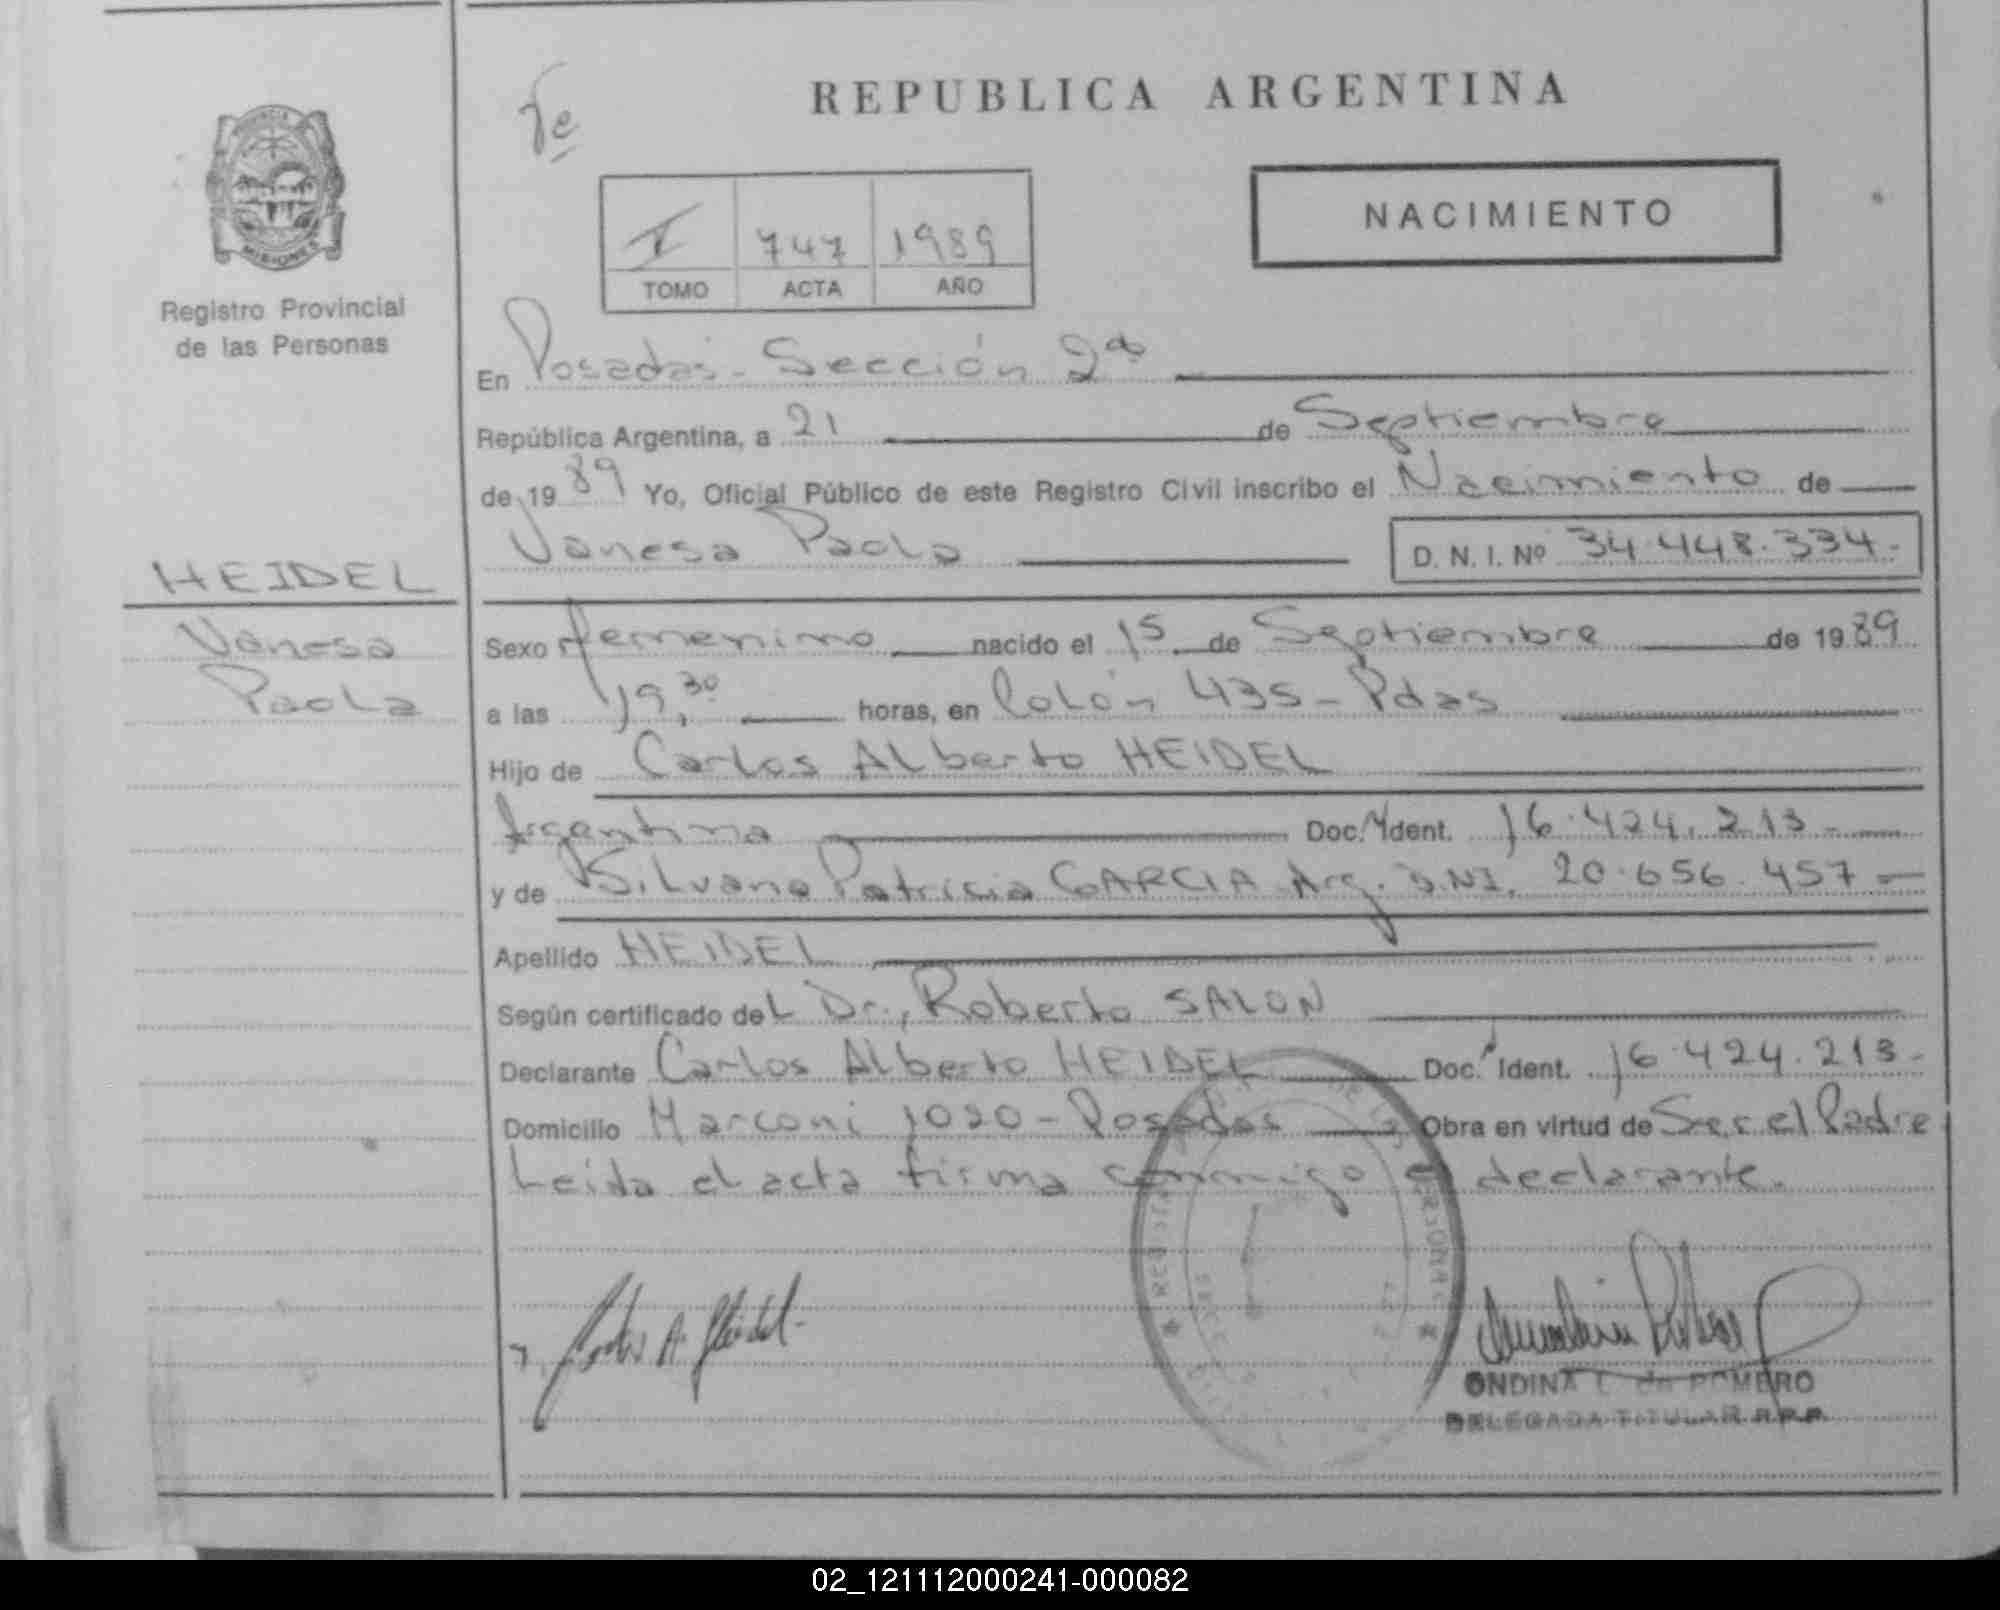 Te
REPUBLICA ARGENTINA
PROVINCIA
MISIONES
Registro Provincial
de las Personas
I 747 1989
TOMO ACTA AÑO
NACIMIENTO
En Posadas - Sección 2ª
República Argentina, a 21 de Septiembre
de 1989 Yo, Oficial Público de este Registro Civil inscribo el Nacimiento de
Vanesa Paola D. N. I. Nº 34.448.334.-
HEIDEL
Vanesa
Paola
Sexo femenino nacido el 15 de Septiembre de 1989
a las 19,30 horas, en Colón 435 - Pdas
Hijo de Carlos Alberto HEIDEL
Argentina Doc. Ident. 16.424.213.-
y de Silvana Patricia GARCIA Arg. D.NI. 20.656.457 -
Apellido HEIDEL
Según certificado del Dr., Roberto SALON
Declarante Carlos Alberto HEIDEL Doc. Ident. 16.424.213.-
Domicilio Marconi 1020 - Posadas Obra en virtud de Ser el Padre
Leida el acta firma conmigo el declarante.
Carlos A. Heidel.
ONDINA de ROMERO
DELEGADA TITULAR R.P.P.
02_121112000241-000082